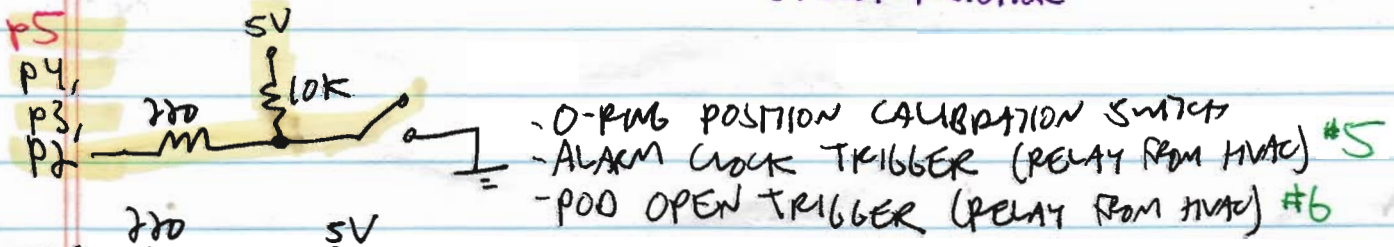 p5
5V
p4,
10K
p3,
220
p2
- O-RING POSITION CALIBRATION SWITCH
- ALARM CLOCK TRIGGER (RELAY FROM HVAC) #5
- POD OPEN TRIGGER (RELAY FROM HVAC) #6
220
5V